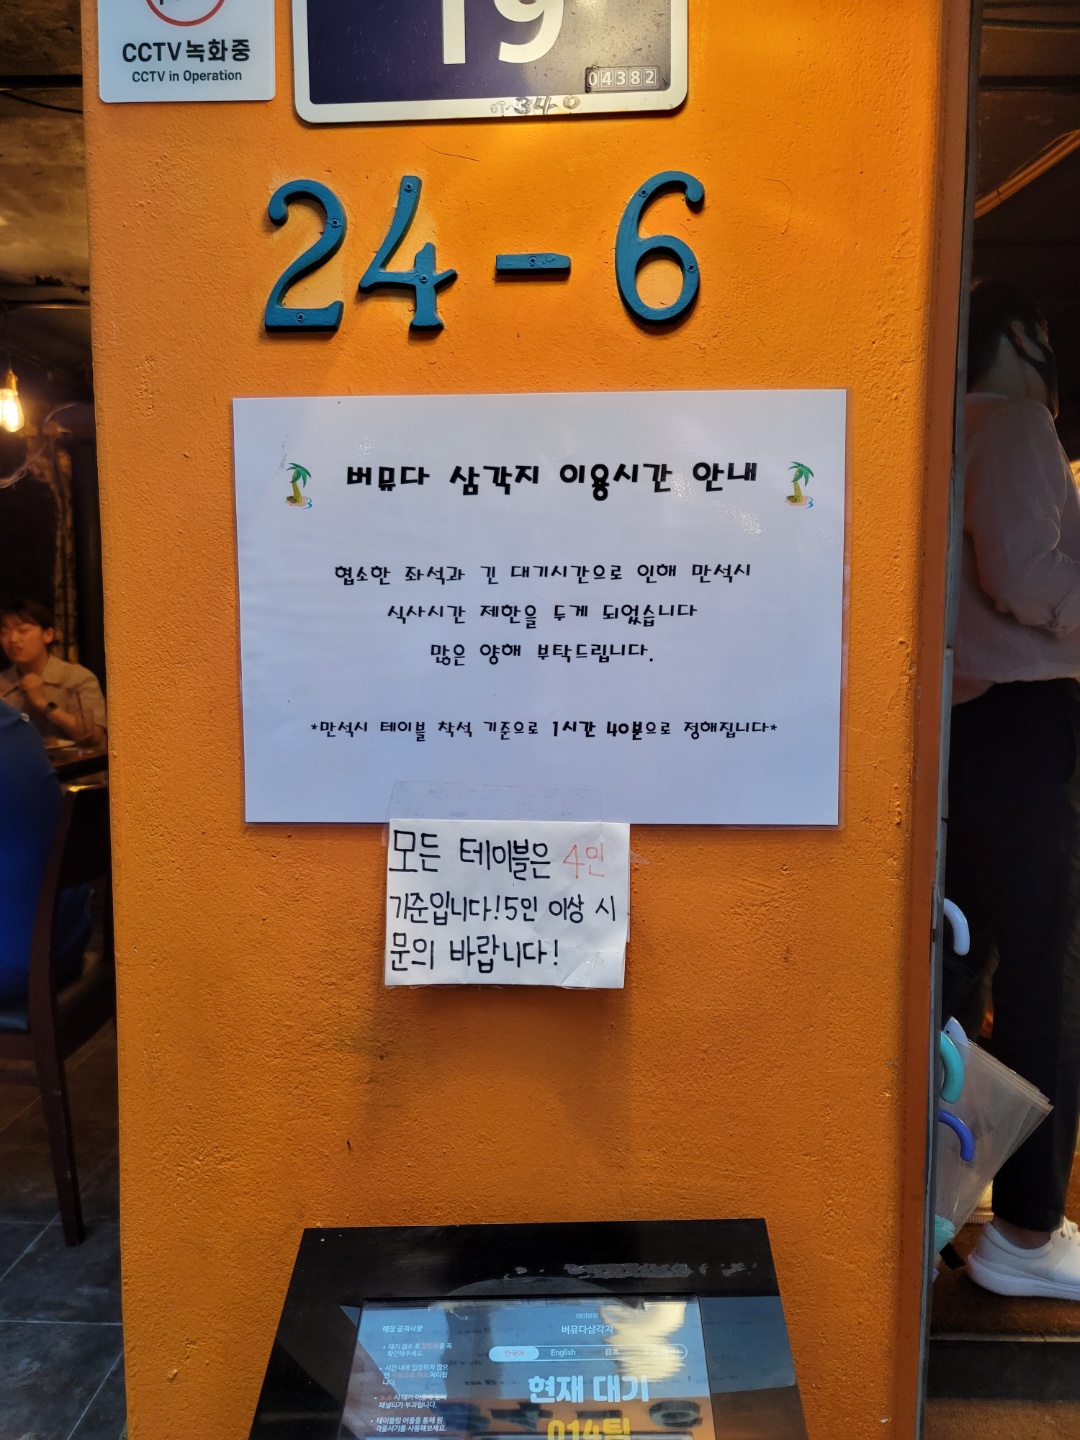 CCTV 녹화중
CCTV in Operation
19
04382
24-6
버뮤다 삼각지 이용시간 안내
협소한 좌석과 긴 대기시간으로 인해 만석시
식사시간 제한을 두게 되었습니다
많은 양해 부탁드립니다.
*만석시 테이블 착석 기준으로 1시간 40분으로 정해집니다*
모든 테이블은 4인
기준입니다! 5인 이상 시
문의 바랍니다!
버뮤다삼각지
매장 공지사항
한국어 English 日本
현재 대기
014팀